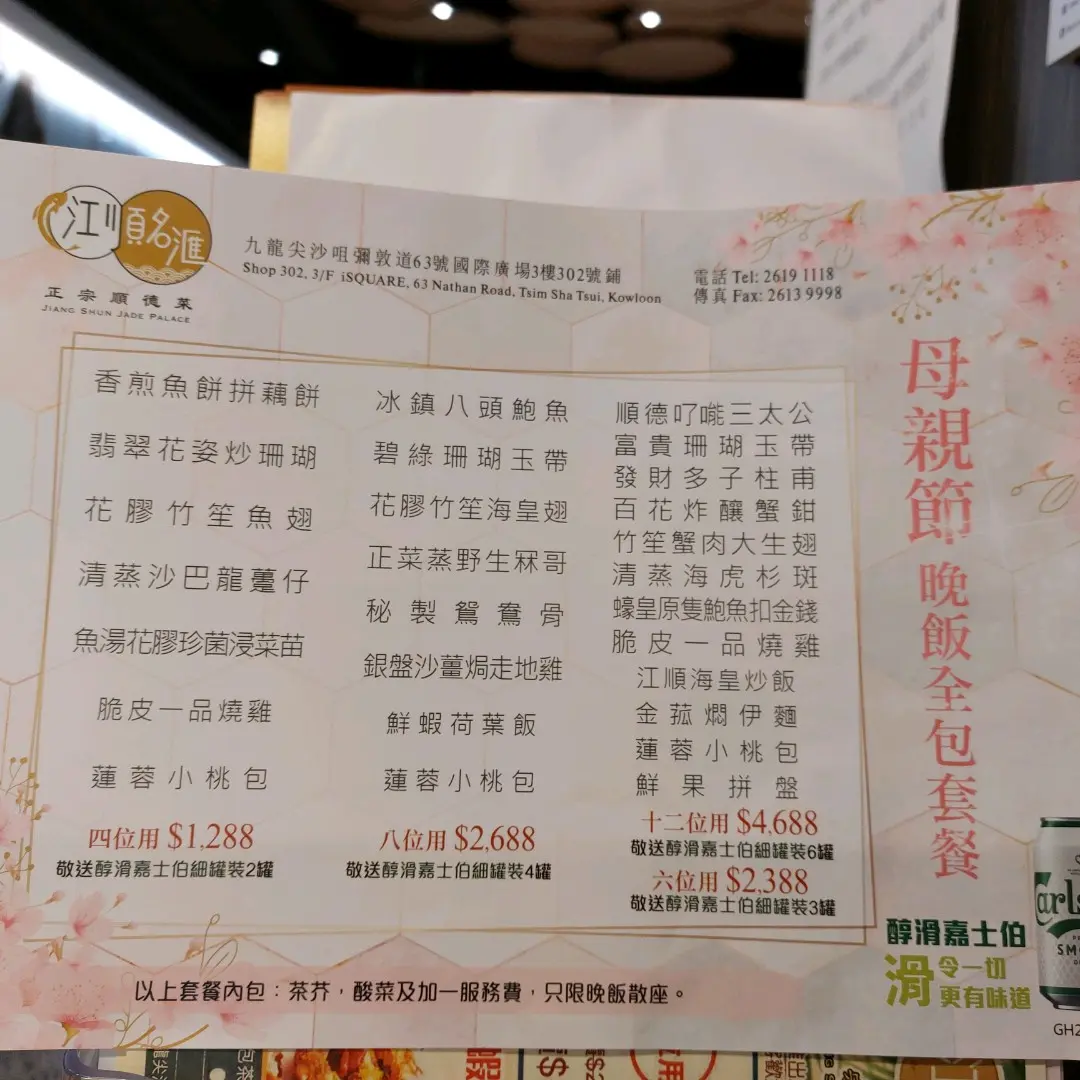 江順名滙
正宗順德菜
JIANG SHUN JADE PALACE
九龍尖沙咀彌敦道63號國際廣場3樓302號鋪
Shop 302, 3/F iSQUARE, 63 Nathan Road, Tsim Sha Tsui, Kowloon
電話 Tel: 2619 1118
傳真 Fax: 2613 9998
母親節晚飯全包套餐
香煎魚餅拼藕餅
翡翠花姿炒珊瑚
花膠竹笙魚翅
清蒸沙巴龍躉仔
魚湯花膠珍菌浸菜苗
脆皮一品燒雞
蓮蓉小桃包
四位用 $1,288
敬送醇滑嘉士伯細罐裝2罐
冰鎮八頭鮑魚
碧綠珊瑚玉帶
花膠竹笙海皇翅
正菜蒸野生冧哥
秘製鴛鴦骨
銀盤沙薑焗走地雞
鮮蝦荷葉飯
蓮蓉小桃包
八位用 $2,688
敬送醇滑嘉士伯細罐裝4罐
順德叮嚨三太公
富貴珊瑚玉帶
發財多子柱甫
百花炸釀蟹鉗
竹笙蟹肉大生翅
清蒸海虎杉斑
蠔皇原隻鮑魚扣金錢
脆皮一品燒雞
江順海皇炒飯
金菰燜伊麵
蓮蓉小桃包
鮮果拼盤
十二位用 $4,688
敬送醇滑嘉士伯細罐裝6罐
六位用 $2,388
敬送醇滑嘉士伯細罐裝3罐
醇滑嘉士伯
滑令一切
更有味道
以上套餐內包：茶芥，酸菜及加一服務費，只限晚飯散座。